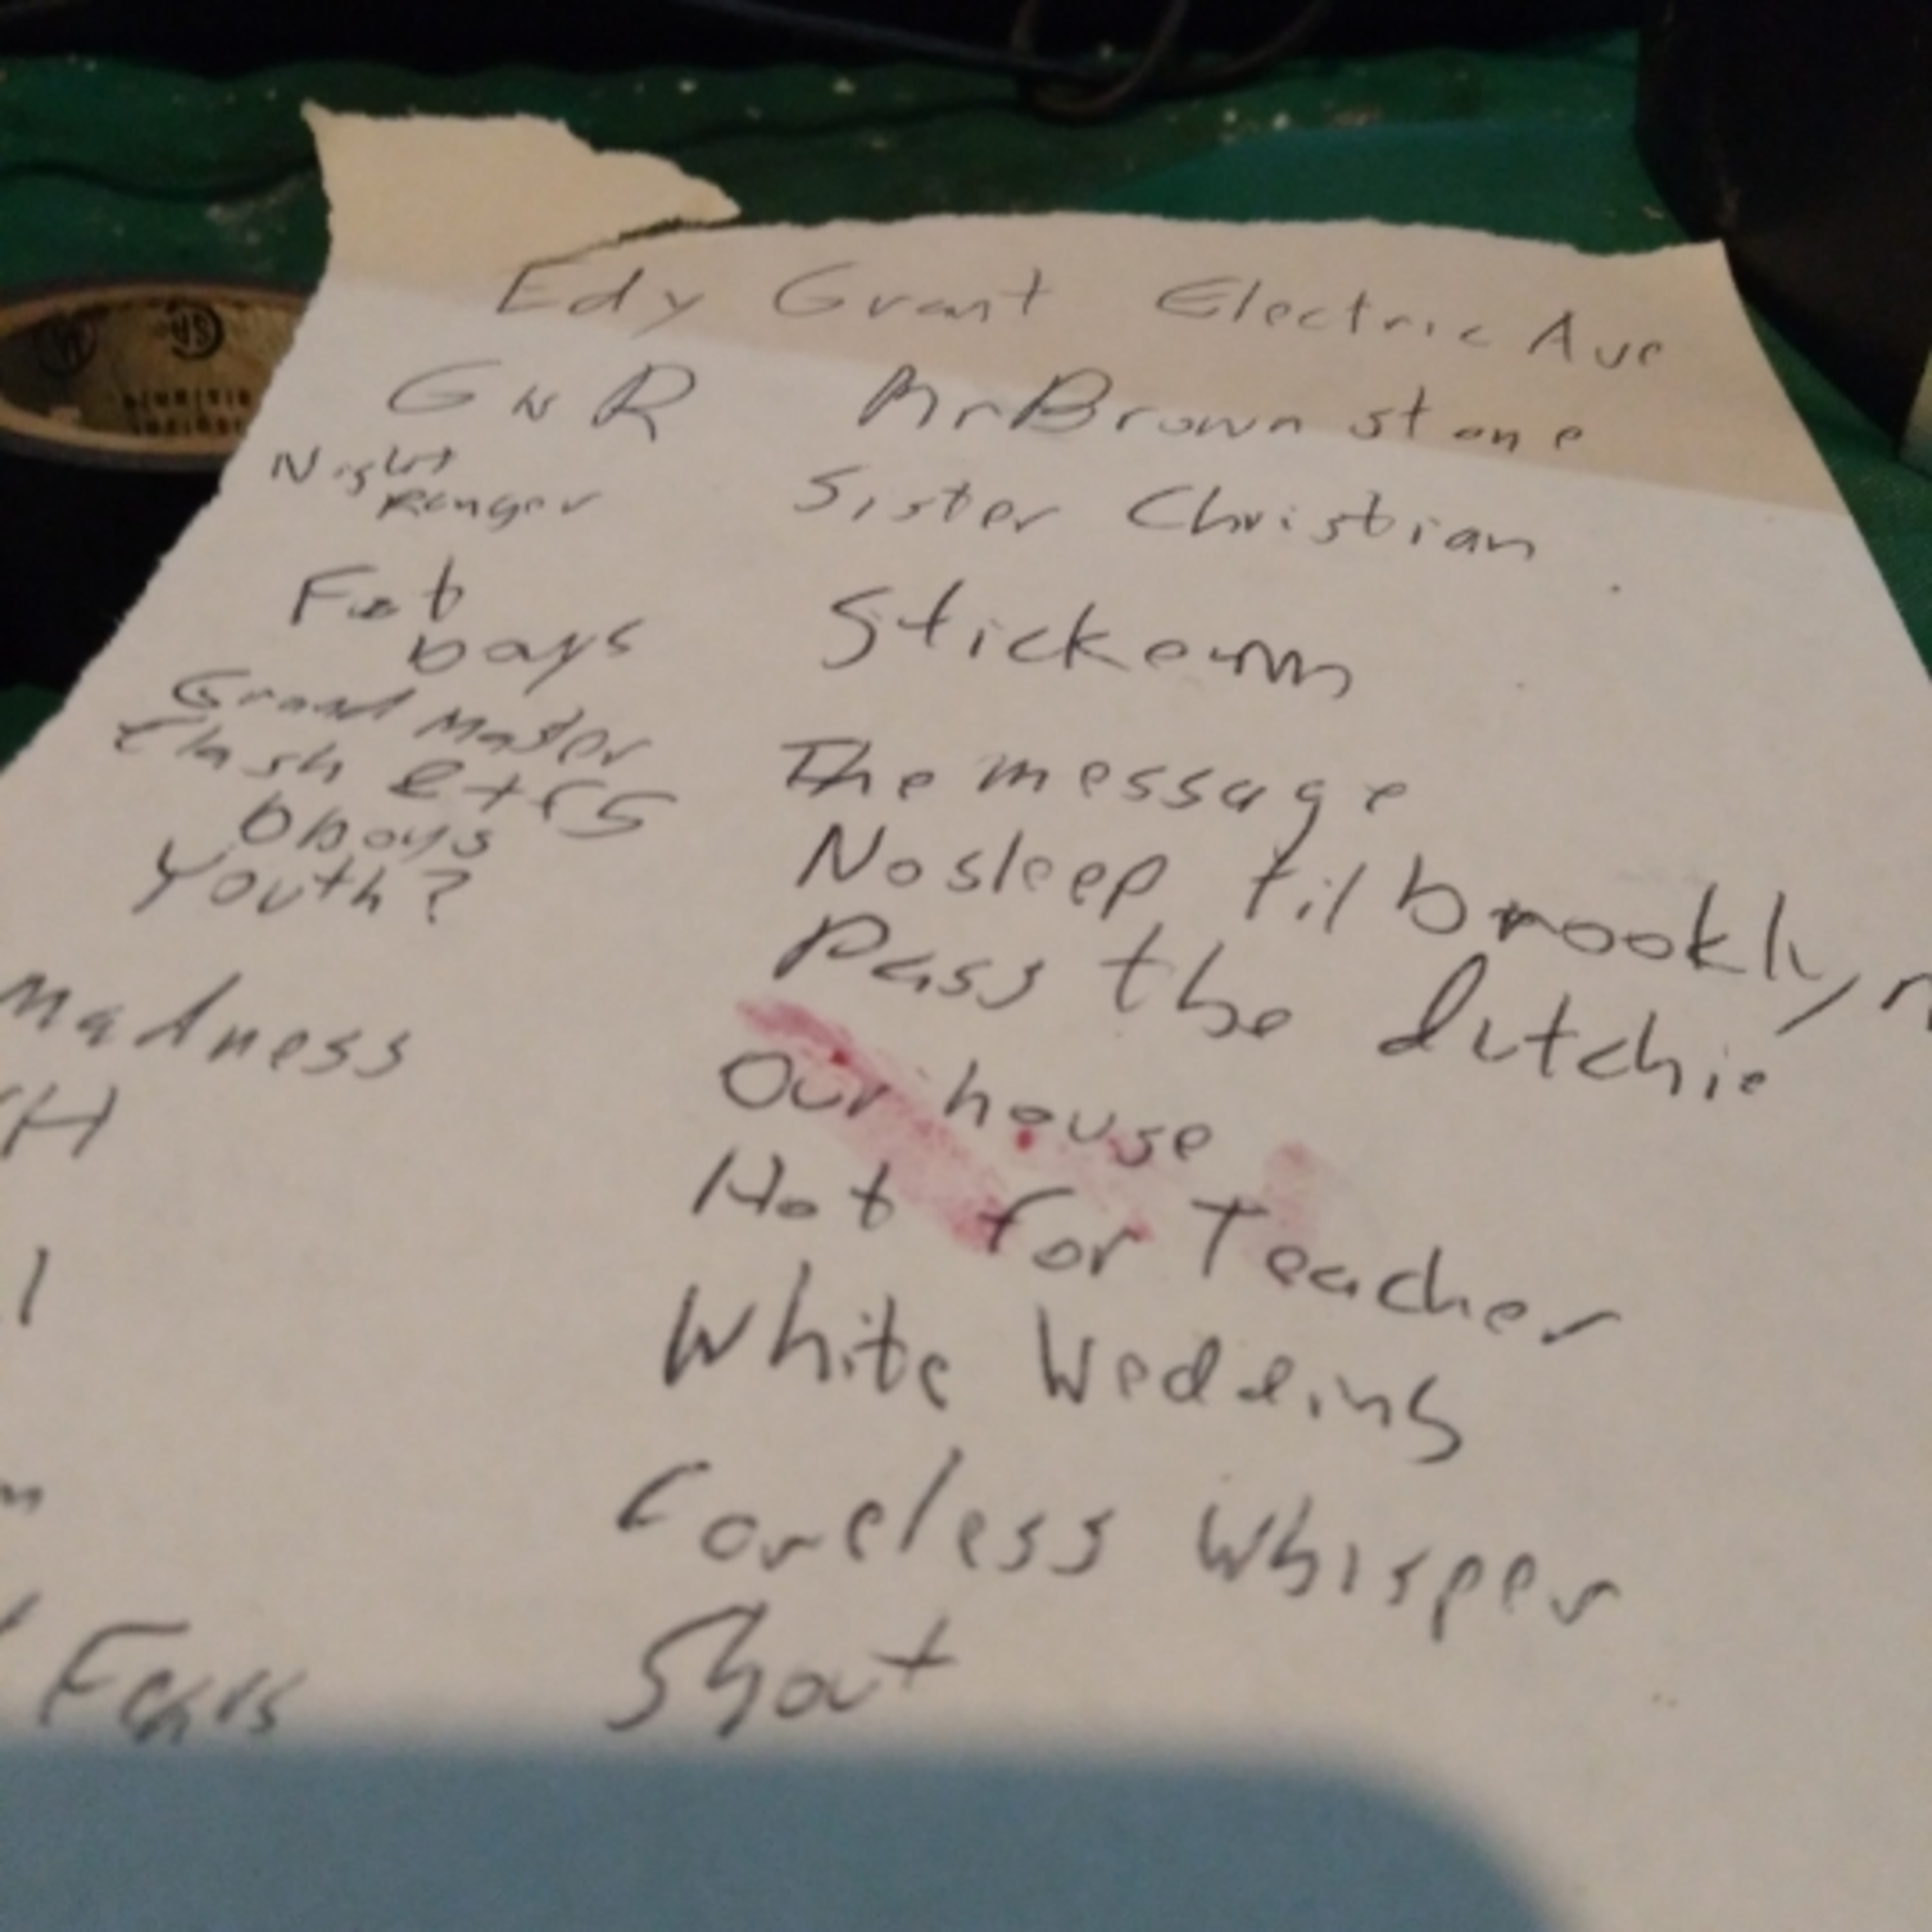 Edy Grant Electric Ave
GNR Mr Brownstone
Night Ranger Sister Christian
Fat boys Stickemm
Grand Master Flash & + f5 The message
bboys No sleep til brooklyn
Youth? Pass the dutchie
Madness Our house
H Hot for Teacher
l White Wedding
m Careless Whisper
Fears Shout